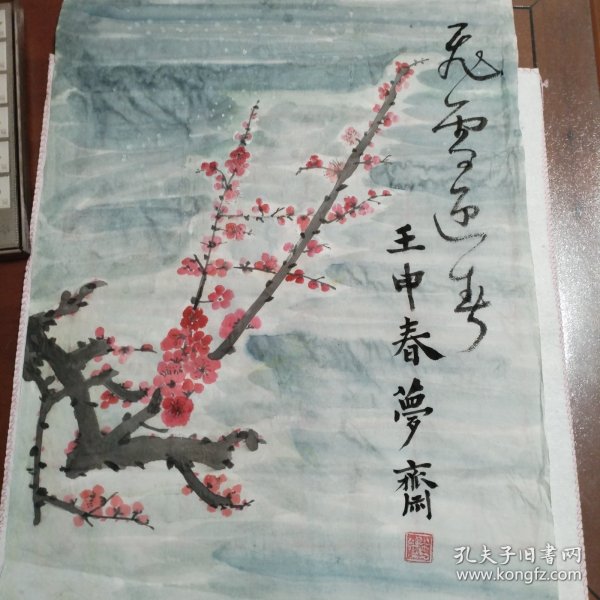 飛雪迎春
壬申春夢齋
孔夫子旧书网
www.kongfz.com